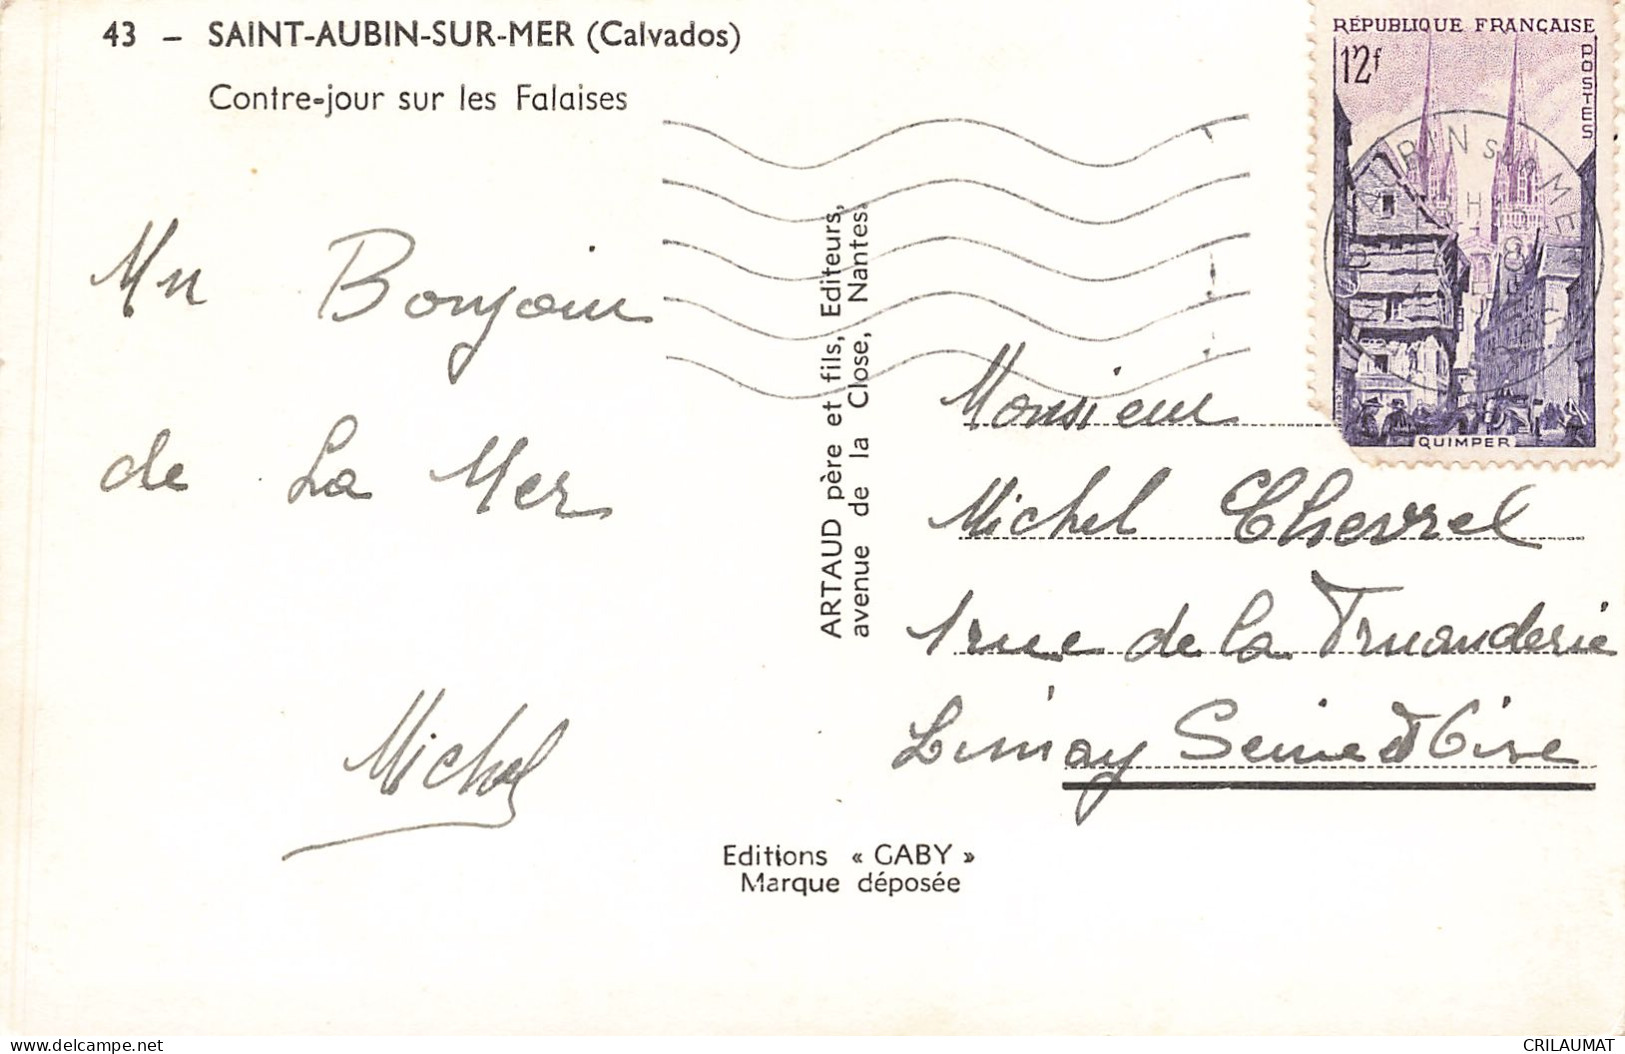 43 - SAINT-AUBIN-SUR-MER (Calvados)
Contre-jour sur les Falaises
RÉPUBLIQUE FRANÇAISE
12f
POSTES
QUIMPER
AUBIN SUR MER
Mn Bonjour
de La Mer
Michel
ARTAUD père et fils, Editeurs,
avenue de la Close, Nantes.
Monsieur
Michel Chevrel
1 rue de la Truanderie
Limay Seine et Oise
Editions « GABY »
Marque déposée
www.delcampe.net
CRILAUMAT